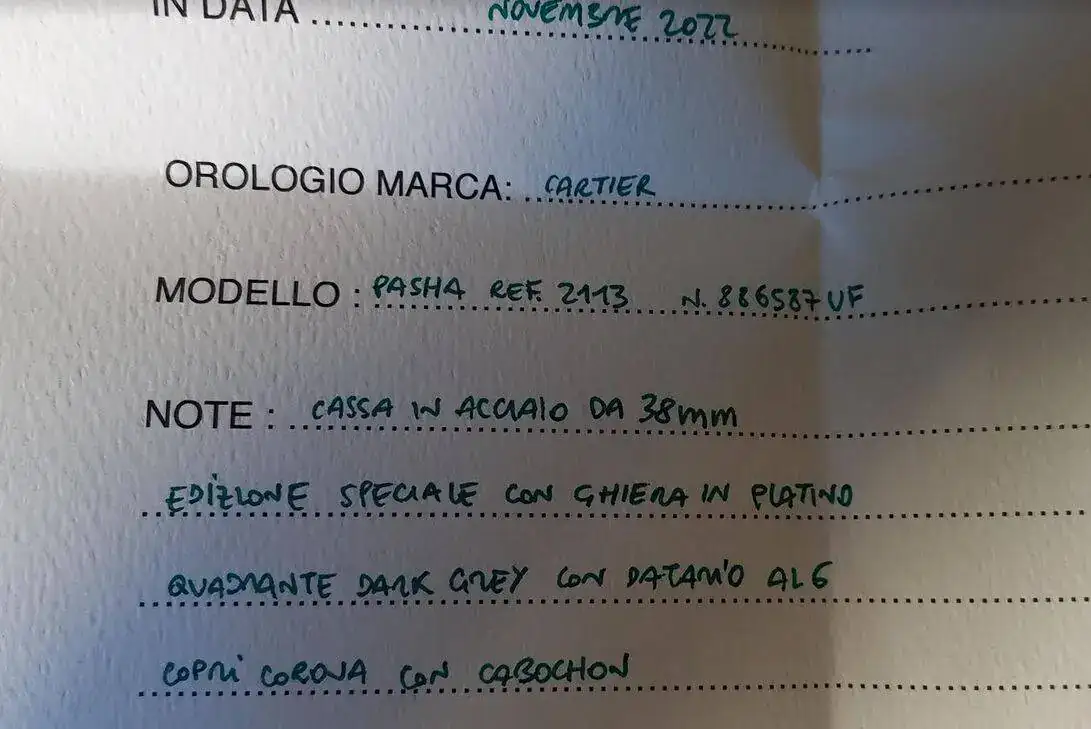 IN DATA ........ NOVEMBRE 2022 ........
OROLOGIO MARCA: .. CARTIER ........
MODELLO : PASHA REF. 2113 N. 886587 UF ........
NOTE : .. CASSA IN ACCIAIO DA 38mm ........
EDIZIONE SPECIALE CON GHIERA IN PLATINO
QUADRANTE DARK GREY CON DATARIO AL 6
COPRI CORONA CON CABOCHON